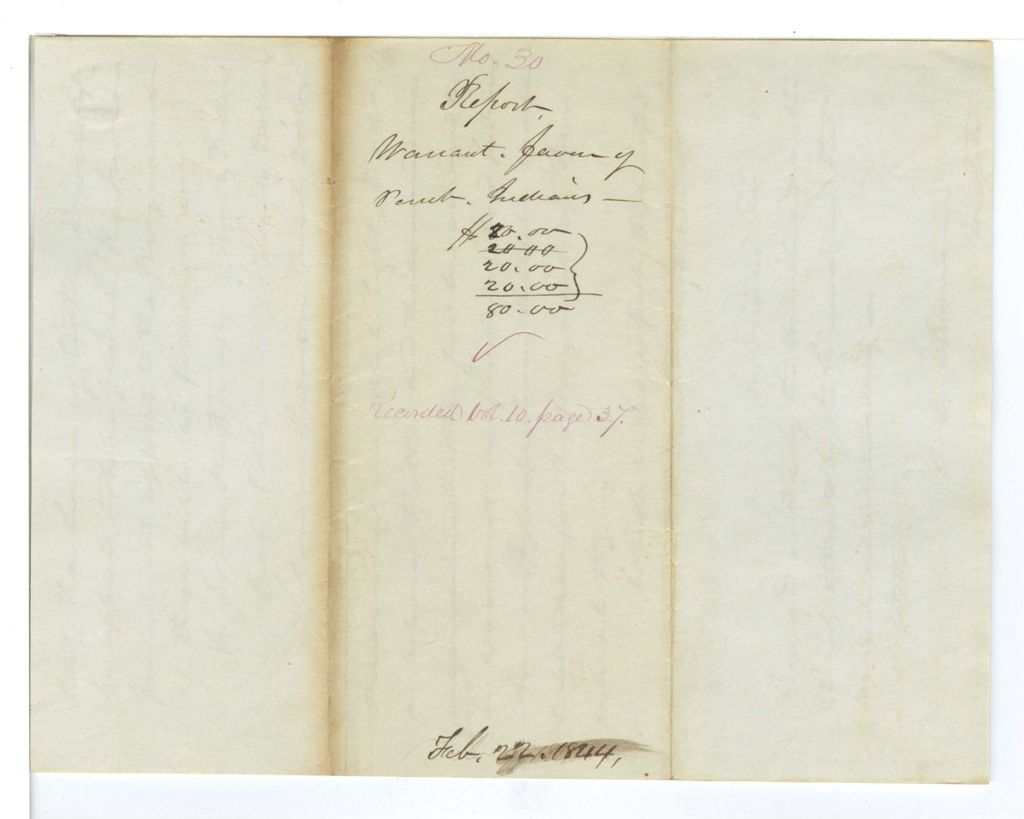 No. 30
Report,
Warrant. favour of
Penob. Indians —
$ 20.00
20.00
20.00
20.00
80.00
Recorded Vol. 10. page 37.
Feb. 22. 1844,